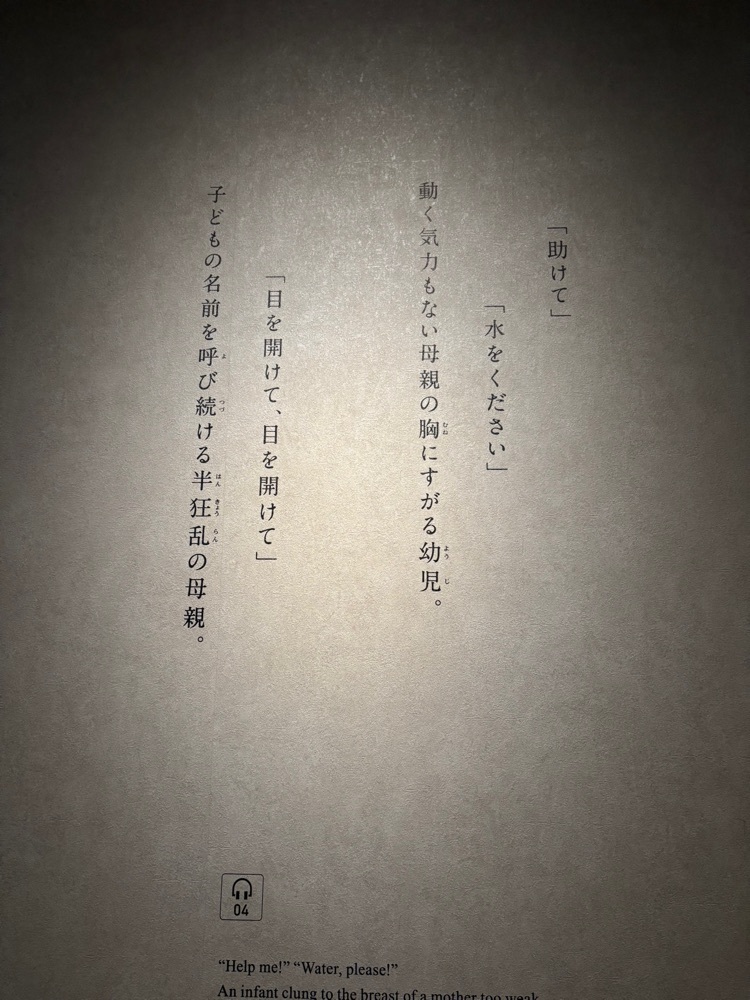 「助けて」
「水をください」
動く気力もない母親の胸にすがる幼児。
「目を開けて、目を開けて」
子どもの名前を呼び続ける半狂乱の母親。
04
“Help me!” “Water, please!”
An infant clung to the breast of a mother too weak